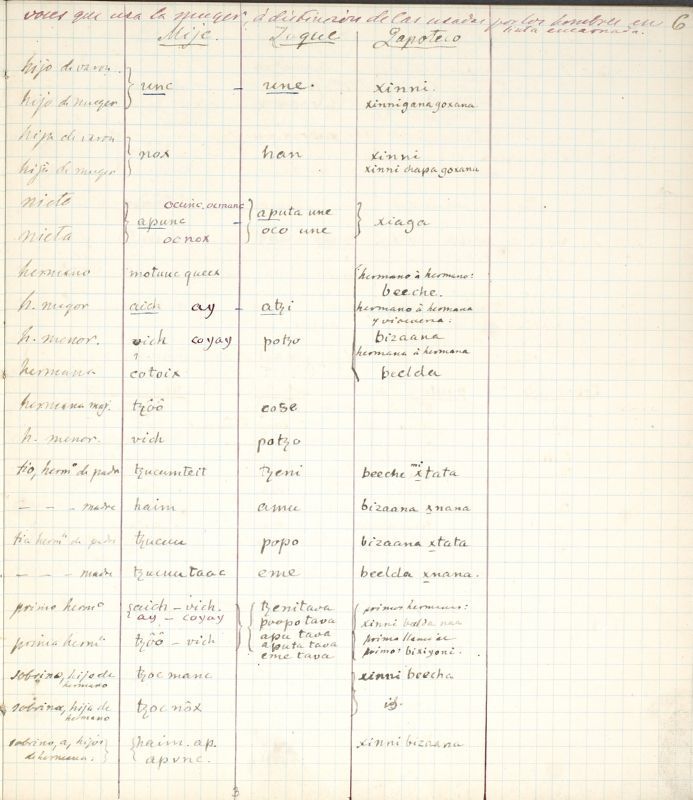 voces que usa la muger, á distincion de las usadas por los hombres en 6
tinta encarnada.
Mije. Zoque Zapoteco
hijo de varon
unc - une. xinni.
hijo de muger xinnigana goxana
hija de varon
nox han xinni
hija de muger xinni chapa goxana
nieto ocunc. ocmanc aputa une
apunc - xiaga
nieta ocnox oco une
hermano motuuc queex hermano à hermano:
beeche.
h. mayor aich ay - atzi hermano à hermana
y viceversa:
h. menor. vich coyay potzo bizaana
hermana à hermana
hermana cotoix beelda
hermana maj. tzôô cose
h. menor. vich potzo
tio, hermº de padre tzucumteit tzeni beeche mi xtata
- - - madre haim amu bizaana xnana
tia hermª de padre tzucuu popo bizaana xtata
- - - madre tzucuu taac eme beelda xnana.
primo hermº aich - vich. tzenitava primos hermanos:
ay - coyay poopotava xinni
prima hermª tzôô - vich apu tava primo
aputa tava primo: bixiyoni.
eme tava
sobrino, hijo de hermano tzoc manc xinni beecha
sobrina, hija de hermano tzoc nôx
sobrino, a, hijos haim. ap. xinni bizaana
de hermana. apunc.
3